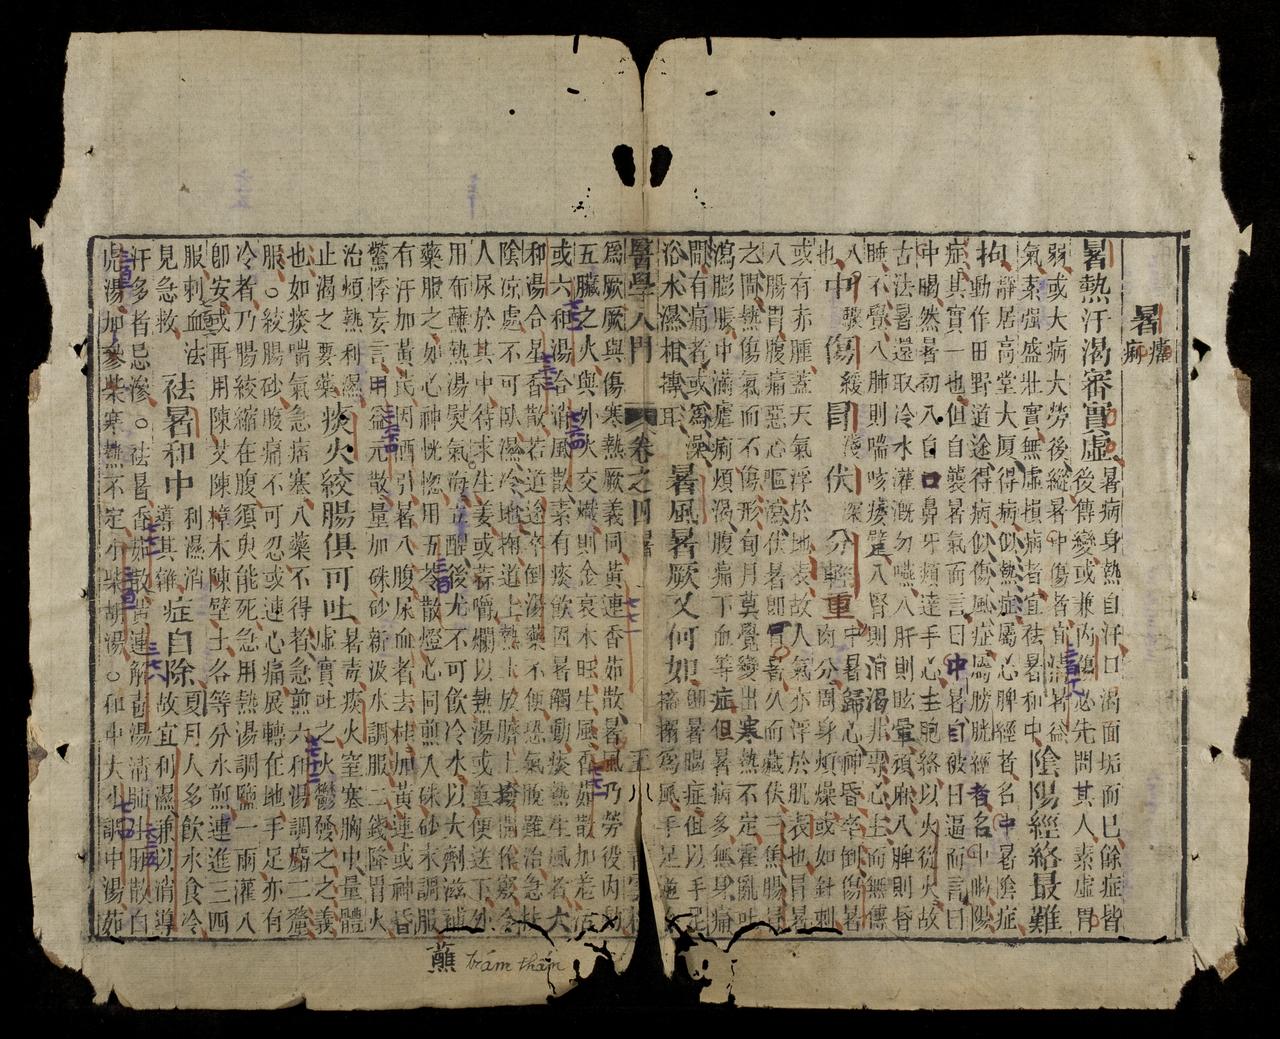 暑 病
暑熱汗渴審實虛 暑病身熱自汗口渴面垢而已餘症皆
弱或大病大勞後縱暑中傷者宜清暑益
後傳變或兼內傷必先問其人素虛胃
氣素强盛壯實無虛損病者宜祛暑和中 陰陽經絡最難
拘 靜居高堂大厦得病似熱症屬心脾經者名中暑陰症
動作田野道途得病似傷風症屬膀胱經者名中暍陽
症其實一也但自襲暑氣而言曰中暑自被日逼而言曰
中暍然暑初入自口鼻牙頰達手心主胞絡以火從火故
古法暑還取冷水灌溉勿嚥入肝則眩暈頑麻入脾則昏
睡不覺入肺則喘咳痿躄入腎則消渴非專心主而無傳
入 中傷冒伏 分輕重 中暑歸心神昏卒倒傷暑
也 肉分周身煩燥或如針刺
或有赤腫蓋天氣浮於地表故人氣亦浮於肌表也冒暑
入腸胃腹痛惡心嘔瀉伏暑即冒暑久而藏伏三焦腸胃
之間熱傷氣而不傷形旬月莫覺變出寒熱不定霍亂吐
瀉膨脹中滿瘧痢煩渴腹痛下血等症但暑病多無身痛
間有痛者或爲澡
浴水濕相摶耳 暑風暑厥又何如
醫學入門 卷之四 暑
爲厥厥與傷寒熱厥義同黃連香茹散暑風乃勞役內動
五臟之火與外火交熾則金衰木旺生風香茹散加羗活
或六和湯合消風散素有痰飲因暑觸動痰熱生風者六
和湯合星香散若道途卒倒湯藥不便恐氣脫難治急扶
陰涼處不可臥濕冷地掬道上熱土放臍上撥開作竅令
人尿於其中待求生姜或蒜嚼爛以熱湯或童便送下外
用布蘸熱湯熨氣海立醒後尤不可飲冷水以大劑滋補
藥服之如心神恍惚用五苓散燈心同煎入硃砂末調服
有汗加黃芪因酒引暑入腹尿血者去桂加黃連或神昏
驚悸妄言用益元散量加硃砂新汲水調服二錢降胃火
治煩熱利濕
止渴之要藥 痰火絞腸俱可吐 暑毒痰火窒塞胸中量體
虛實吐之火鬱發之之義
也如痰喘氣急痞塞入藥不得者急煎六和湯調麝二釐
服○絞腸砂腹痛不可忍或連心痛展轉在地手足亦有
冷者乃腸絞縮在腹須臾能死急用熱湯調鹽一兩灌入
卽安或再用陳艾陳樟木陳壁土各等分水煎連進三四
服刺血法
見急救 祛暑和中 利濕消
導其雜 症自除 夏月人多飲水食冷
故宜利濕兼以消導
汗多者忌滲○祛暑香茹散黃連解毒湯清肺生脉散白
虎湯加參柴寒熱不定小柴胡湯○和中大小調中湯茹
蘸 trám thấm